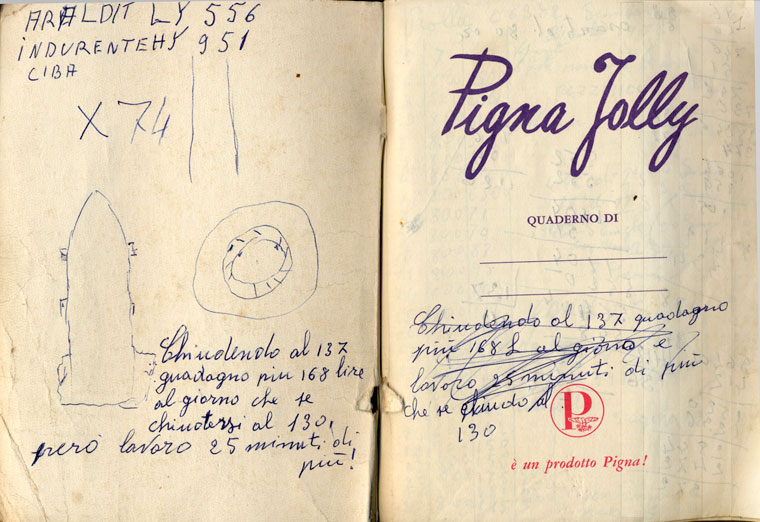 ARALDIT LY 556
INDURENTEHY 951
CIBA
X 74
Chiudendo al 137
guadagno piu 168 lire
al giorno che se
chiudessi al 130,
però lavoro 25 minuti di
più!
Pigna Jolly
QUADERNO DI
Chiudendo al 137 guadagno
più 168 L al giorno e
lavoro 25 minuti di più
che se chiudo al
130
P
è un prodotto Pigna!